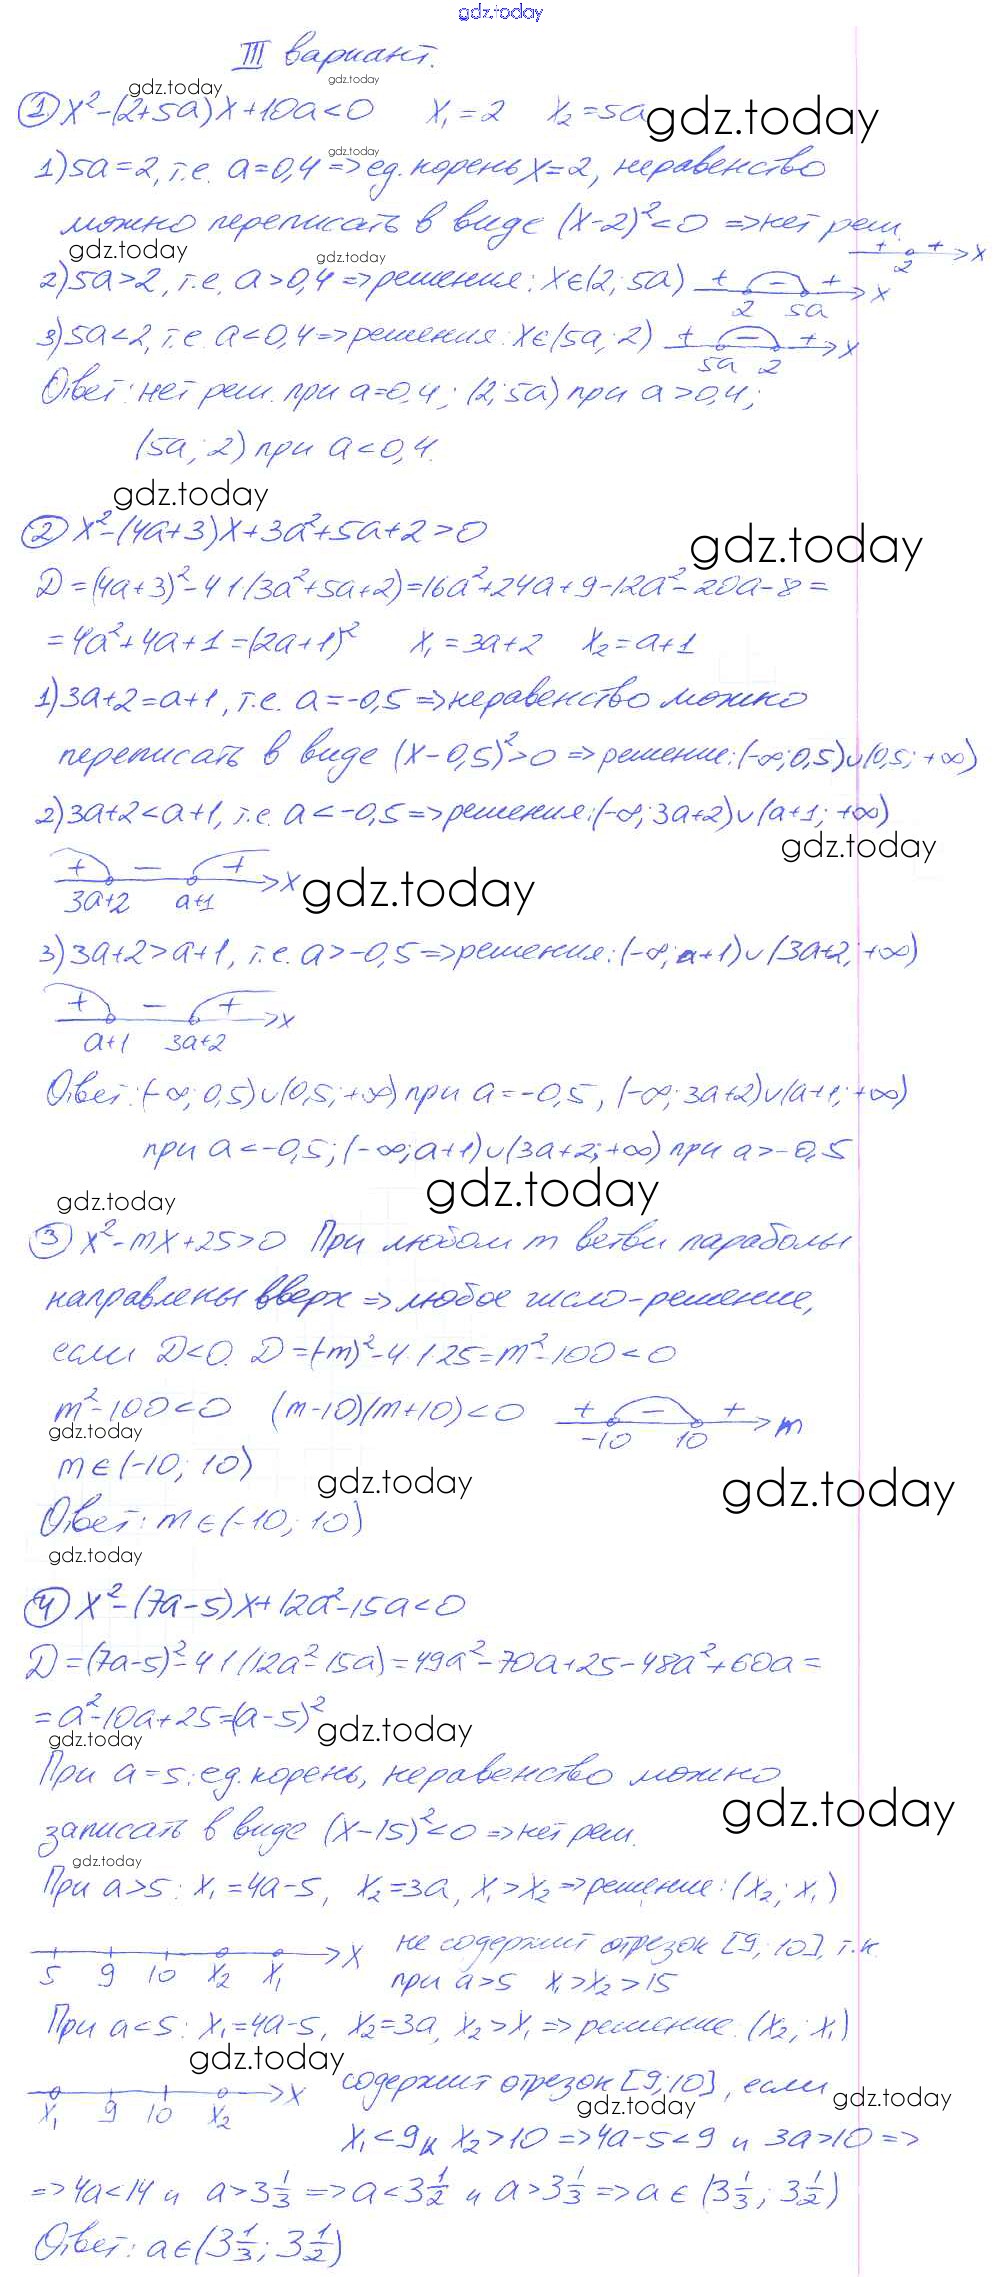 gdz.today
III вариант.
gdz.today gdz.today
① x²-(2+5a)x+10a<0 x₁=2 x₂=5a gdz.today
gdz.today
1) 5a=2, т.е. a=0,4 => ед. корень x=2, неравенство
можно переписать в виде (x-2)²<0 => нет реш.
+ + x
2
gdz.today gdz.today
2) 5a>2, т.е. a>0,4 => решения: x∈(2; 5a) + - + x
2 5a
3) 5a<2, т.е. a<0,4 => решения: x∈(5a; 2) + - + x
5a 2
Ответ: нет реш. при a=0,4; (2; 5a) при a>0,4;
(5a; 2) при a<0,4.
gdz.today
② x²-(4a+3)x+3a²+5a+2>0 gdz.today
D=(4a+3)²-4·1·(3a²+5a+2)=16a²+24a+9-12a²-20a-8=
=4a²+4a+1=(2a+1)² x₁=3a+2 x₂=a+1
1) 3a+2=a+1, т.е. a=-0,5 => неравенство можно
переписать в виде (x-0,5)²>0 => решение: (-∞; 0,5)∪(0,5; +∞)
2) 3a+2<a+1, т.е. a<-0,5 => решения: (-∞; 3a+2)∪(a+1; +∞)
gdz.today
+ - + x gdz.today
3a+2 a+1
3) 3a+2>a+1, т.е. a>-0,5 => решения: (-∞; a+1)∪(3a+2; +∞)
+ - + x
a+1 3a+2
Ответ: (-∞; 0,5)∪(0,5; +∞) при a=-0,5, (-∞; 3a+2)∪(a+1; +∞)
при a<-0,5; (-∞; a+1)∪(3a+2; +∞) при a>-0,5
gdz.today gdz.today
③ x²-mx+25>0 При любом m ветви параболы
направлены вверх => любое число-решение,
если D<0. D=(-m)²-4·1·25=m²-100<0
m²-100<0 (m-10)(m+10)<0 + - + m
-10 10
gdz.today
m∈(-10; 10)
gdz.today gdz.today
Ответ: m∈(-10; 10)
gdz.today
④ x²-(7a-5)x+12a²-15a<0
D=(7a-5)²-4·1·(12a²-15a)=49a²-70a+25-48a²+60a=
=a²-10a+25=(a-5)² gdz.today
gdz.today
При a=5: ед. корень, неравенство можно
gdz.today
записать в виде (x-15)²<0 => нет реш.
gdz.today
При a>5: x₁=4a-5, x₂=3a, x₁>x₂ => решение: (x₂; x₁)
x не содержит отрезок [9; 10], т.к.
5 9 10 x₂ x₁ при a>5 x₁>x₂>15
При a<5: x₁=4a-5, x₂=3a, x₂>x₁ => решение. (x₂; x₁)
gdz.today
x содержит отрезок [9; 10], если
x₁ 9 10 x₂
gdz.today gdz.today
x₁<9 и x₂>10 => 4a-5<9 и 3a>10 =>
=> 4a<14 и a>3 1/3 => a<3 1/2 и a>3 1/3 => a∈(3 1/3; 3 1/2)
Ответ: a∈(3 1/3; 3 1/2)